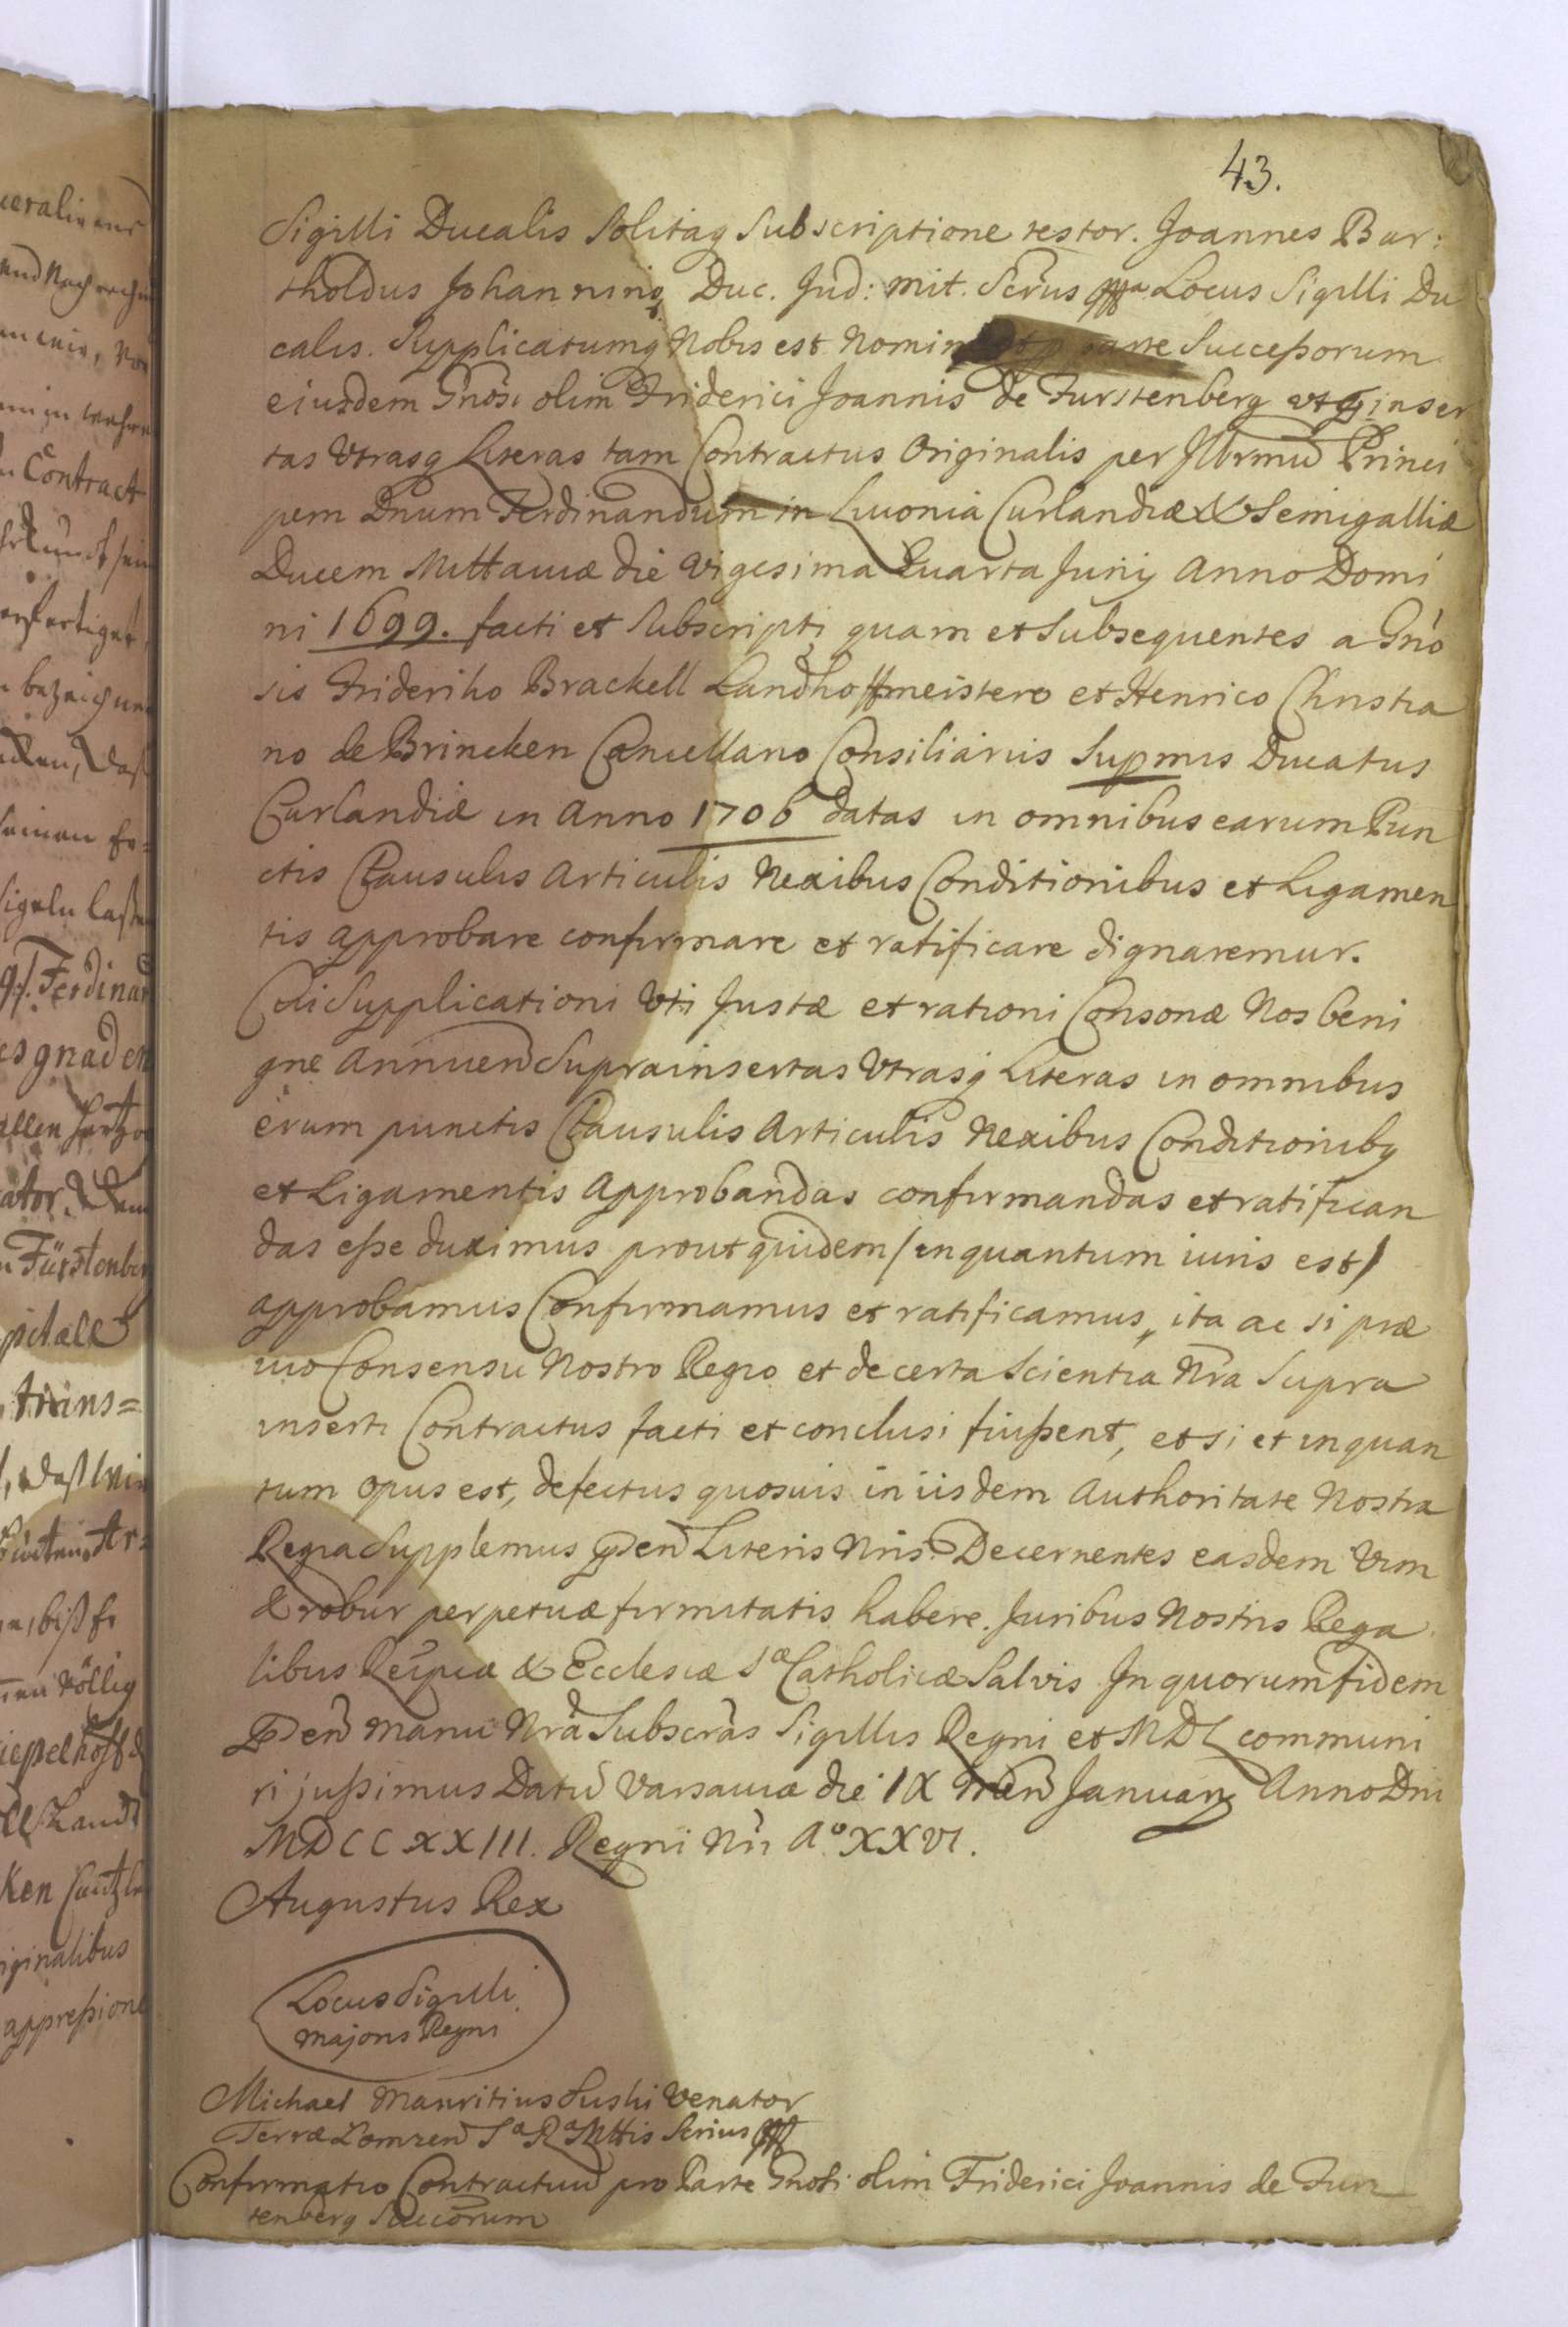 43.
Sigilli Ducalis Solitaq Subscriptione testor. Joannes Bar:
tholdus Johanning Duc. Jud: mit. Scrus Locus Sigilli Du
calis. Supplicatumq Nobis est Nomine parte Succeßorum
eiusdem Gnosi olim Friderici Joannis de Furstenberg inser
tas Utrasq Literas tam Contractus Originalis per Illrmu Princi
pem Dnum Ferdinandum in Livonia Curlandiæ & Semigalliæ
Ducem Mittaviæ die Vigesima Quarta Junij Anno Domi
ni 1699. facti et Subscripti quam et Subsequentes a Gno
sis Frideriho Brackell Landhoffmeistero et Henrico Christia
no de Brincken Cancellario Consiliariis Supmis Ducatus
Curlandiæ in Anno 1706 datas in omnibus earum Pun
ctis Clausulis Articulis Nexibus Conditionibus et Ligamen
tis approbare confirmare et ratificare dignaremur.
Cui Supplicationi Uti Justæ et rationi Consonæ Nos beni
gne Annuen Suprainsertas Utrasq Literas in omnibus
erum punctis Clausulis Articulis Nexibus Conditionibq
et Ligamentis Approbandas confirmandas et ratifican
das eße duximus prout quidem /inquantum iuris est/
approbamus Confirmamus et ratificamus, ita ac si præ
vio Consensu Nostro Regio et de certa Scientia Nra Supra
inserti Contractus facti et conclusi fuißent, et si et inquan
tum opus est, defectus quosuis in iisdem Authoritate Nostra
Regia Supplemus Literis Nris. Decernentes easdem Vim
& robur perpetuæ firmitatis habere. Juribus Nostris Rega
libus Reipcæ & Ecclesiæ Sæ Catholicæ Salvis In quorum fidem
manu Nra Subscras Sigillis Regni et MDL communi
ri jußimus Datu Varsaviæ die IX Men Januarij Anno Dni
MDCCXXIII. Regni Nri Aº XXVI.
Augustus Rex
Locus Sigilli
majoris Regni
Michael Mauritius Suski Venator
Terræ Lomzen Sa Ra Mttis Scrius
Confirmatio Contractuu pro Parte Gnosi olim Friderici Joannis de Furs
tenberg Succorum
Contract
bezeichnen
Ferdinan
gnaden
Fürstenber
pitall
trans=
völlig
Landt
iginalibus
appreßione